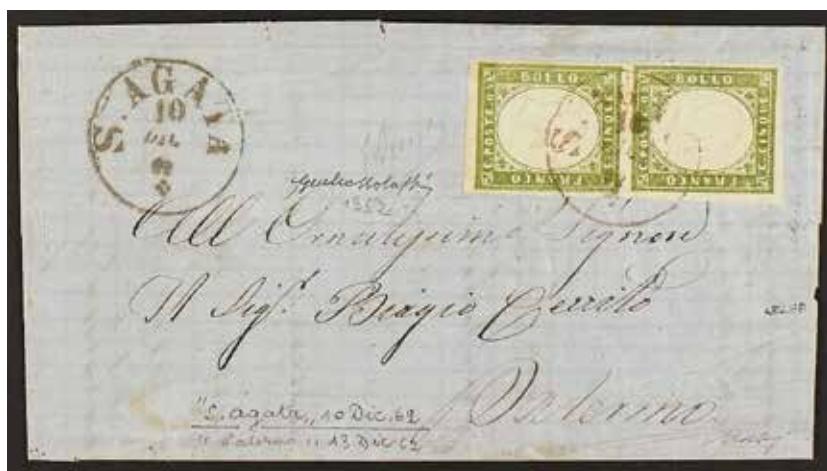 S. AGATA
10
DIC
62
BOLLO
FRANCO
BOLLO
FRANCO
All Ornatissimo Signore
Il Sig.r Biagio Cerrito
Palermo
"S. Agata,, 10 Dic. 62
" Palermo ,, 13 Dic 62